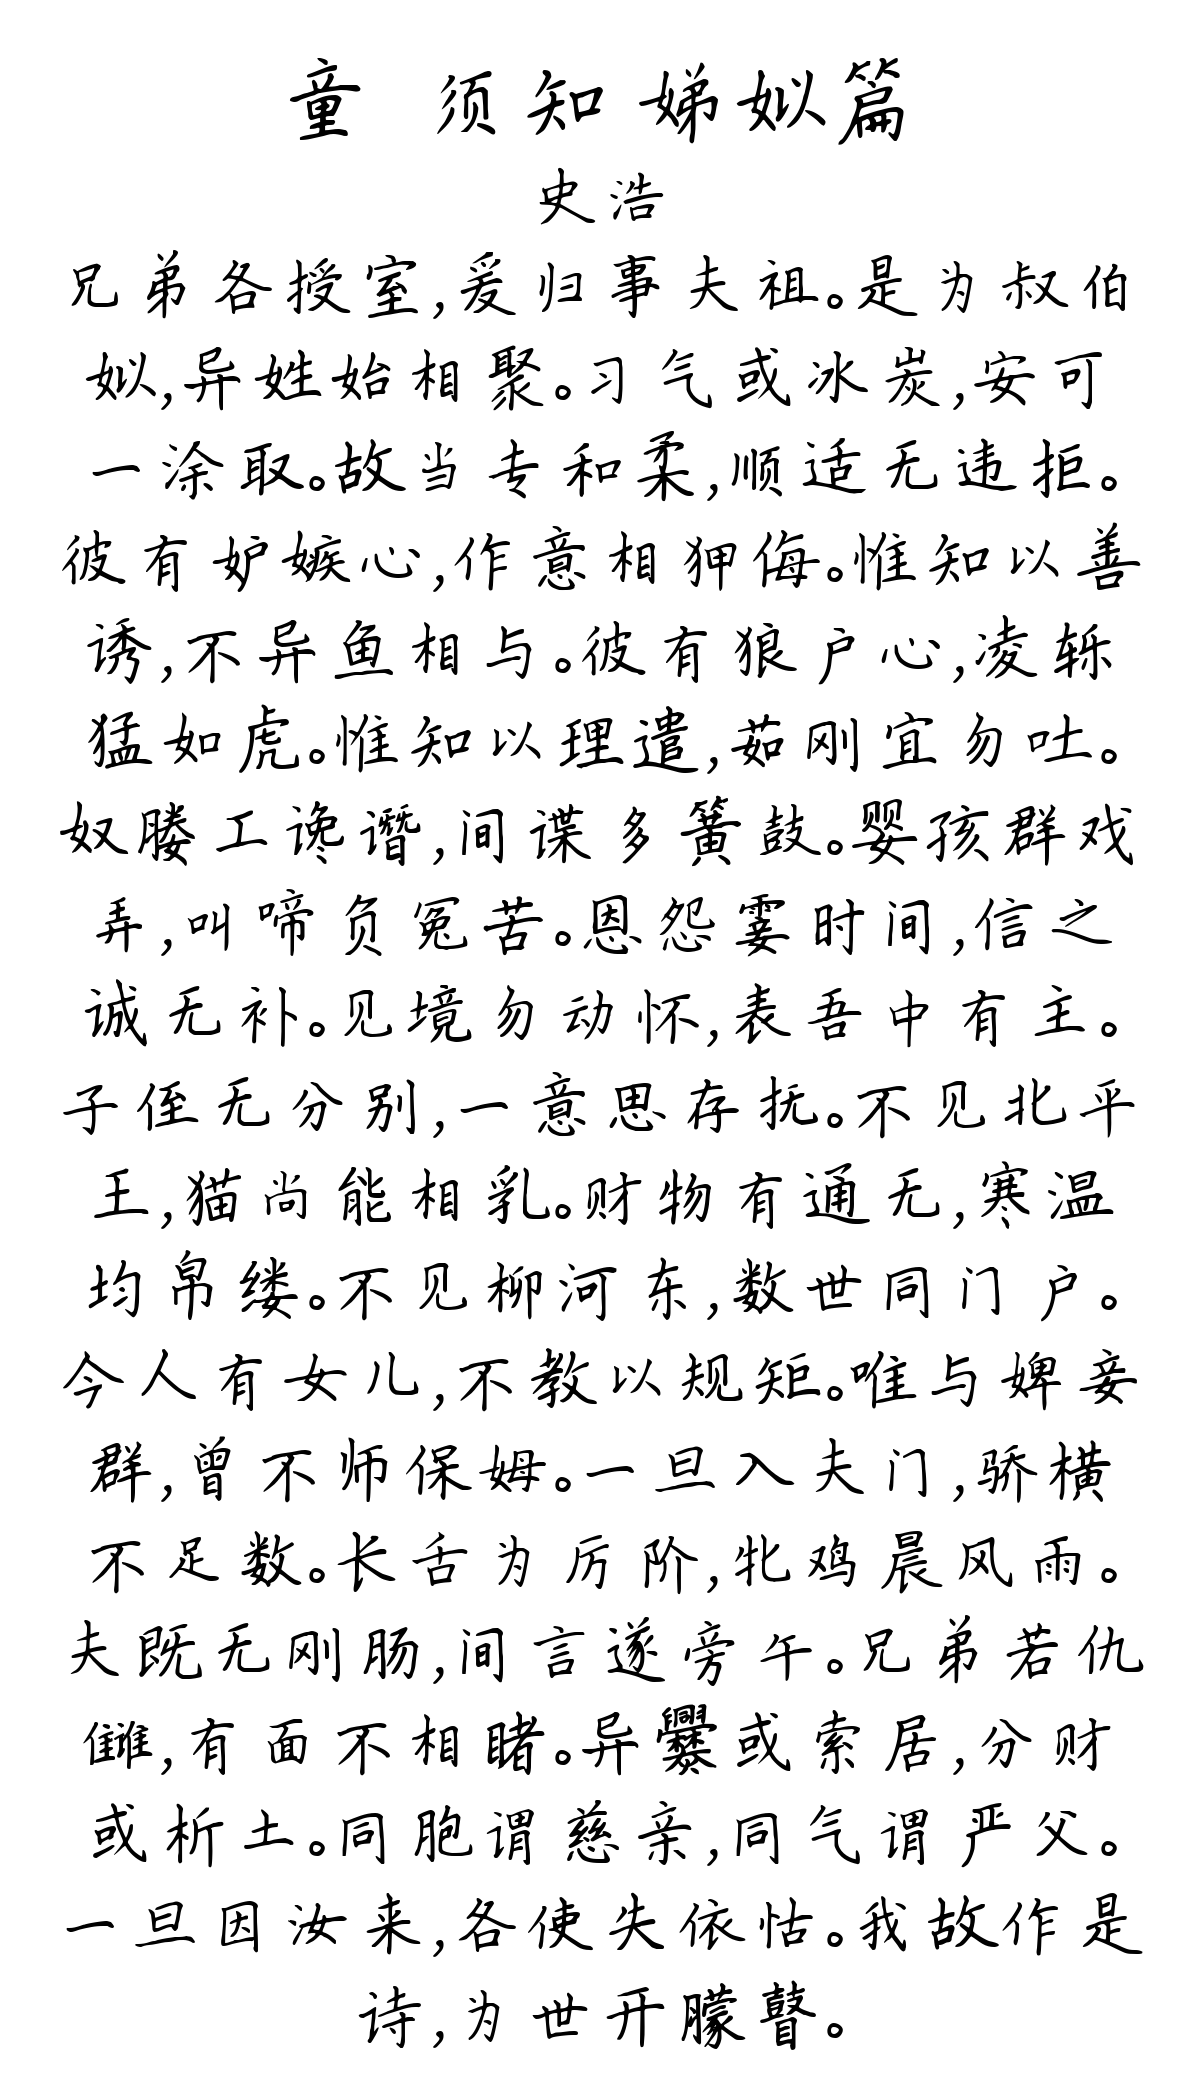 童 须知娣姒篇
史浩
兄弟各授室,爰归事夫祖。是为叔伯
姒,异姓始相聚。习气或冰炭,安可
一涂取。故当专和柔,顺适无违拒。
彼有妒嫉心,作意相狎侮。惟知以善
诱,不异鱼相与。彼有狼户心,凌轹
猛如虎。惟知以理遣,茹刚宜勿吐。
奴媵工谗谮,间谍多簧鼓。婴孩群戏
弄,叫啼负冤苦。恩怨霎时间,信之
诚无补。见境勿动怀,表吾中有主。
子侄无分别,一意思存抚。不见北平
王,猫尚能相乳。财物有通无,寒温
均帛缕。不见柳河东,数世同门户。
今人有女儿,不教以规矩。唯与婢妾
群,曾不师保姆。一旦入夫门,骄横
不足数。长舌为厉阶,牝鸡晨风雨。
夫既无刚肠,间言遂旁午。兄弟若仇
雠,有面不相睹。异爨或索居,分财
或析土。同胞谓慈亲,同气谓严父。
一旦因汝来,各使失依怙。我故作是
诗,为世开朦瞽。